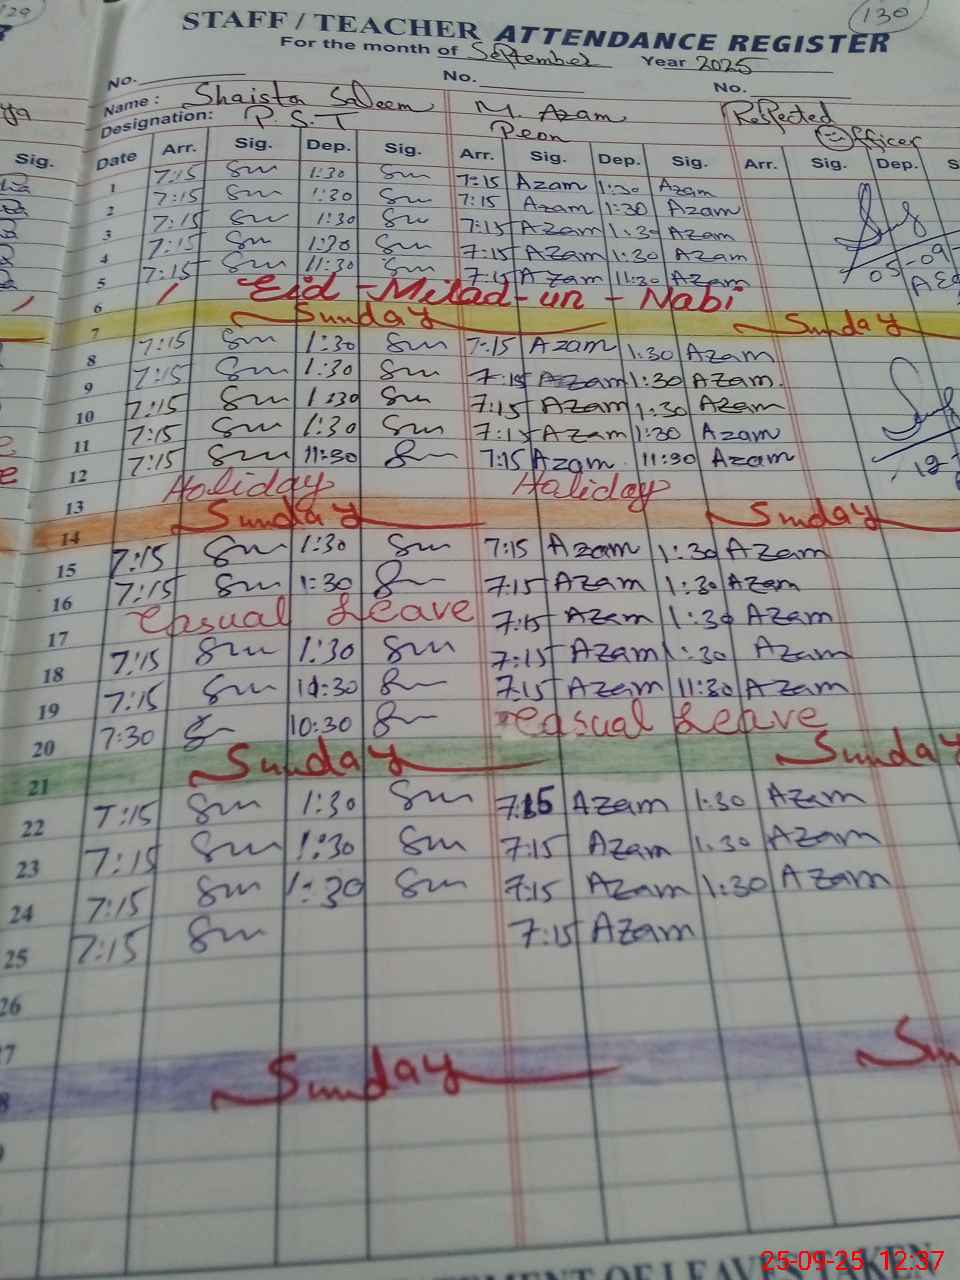 129
130
STAFF / TEACHER ATTENDANCE REGISTER
For the month of September Year 2025
No. No. No.
Name : Shaista Saleem M. Azam Respected
Designation: P.S.T Peon Officer
Sig. Date Arr. Sig. Dep. Sig. Arr. Sig. Dep. Sig. Arr. Sig. Dep. S
1 7:15 Sm 1:30 Sm 7:15 Azam 1:30 Azam
2 7:15 Sm 1:30 Sm 7:15 Azam 1:30 Azam
3 7:15 Sm 1:30 Sm 7:15 Azam 1:30 Azam
4 7:15 Sm 1:30 Sm 7:15 Azam 1:30 Azam
5 7:15 Sm 11:30 Sm 7:15 Azam 11:30 Azam 05-09
6 Eid-Milad-un-Nabi
7 Sunday Sunday
8 7:15 Sm 1:30 Sm 7:15 Azam 1:30 Azam
9 7:15 Sm 1:30 Sm 7:15 Azam 1:30 Azam
10 7:15 Sm 1:30 Sm 7:15 Azam 1:30 Azam
11 7:15 Sm 1:30 Sm 7:15 Azam 1:30 Azam
12 7:15 Sm 11:30 Sm 7:15 Azam 11:30 Azam
13 Holiday Holiday
14 Sunday Sunday
15 7:15 Sm 1:30 Sm 7:15 Azam 1:30 Azam
16 7:15 Sm 1:30 Sm 7:15 Azam 1:30 Azam
17 Casual Leave 7:15 Azam 1:30 Azam
18 7:15 Sm 1:30 Sm 7:15 Azam 1:30 Azam
19 7:15 Sm 11:30 Sm 7:15 Azam 11:30 Azam
20 7:30 Sm 10:30 Sm Casual Leave
21 Sunday Sunday
22 7:15 Sm 1:30 Sm 7:15 Azam 1:30 Azam
23 7:15 Sm 1:30 Sm 7:15 Azam 1:30 Azam
24 7:15 Sm 1:30 Sm 7:15 Azam 1:30 Azam
25 7:15 Sm 7:15 Azam
26
7
8 Sunday Sun
OF LEAVES TAKEN
25-09-25 12:37